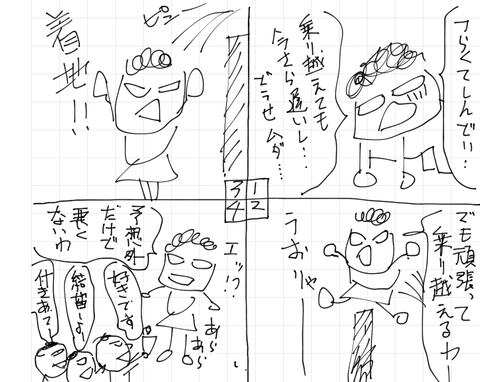 つらくてしんどい…
乗り越えても
今さら遅いし…
どうせムダ……
でも頑張って
乗り越えるわ
うおりゃー
ピュー
着地!!
エッ!?
好きです
結婚しよ
付きあて
あら
あら
予想外
だけで
悪く
ないわ
3 1
4 2